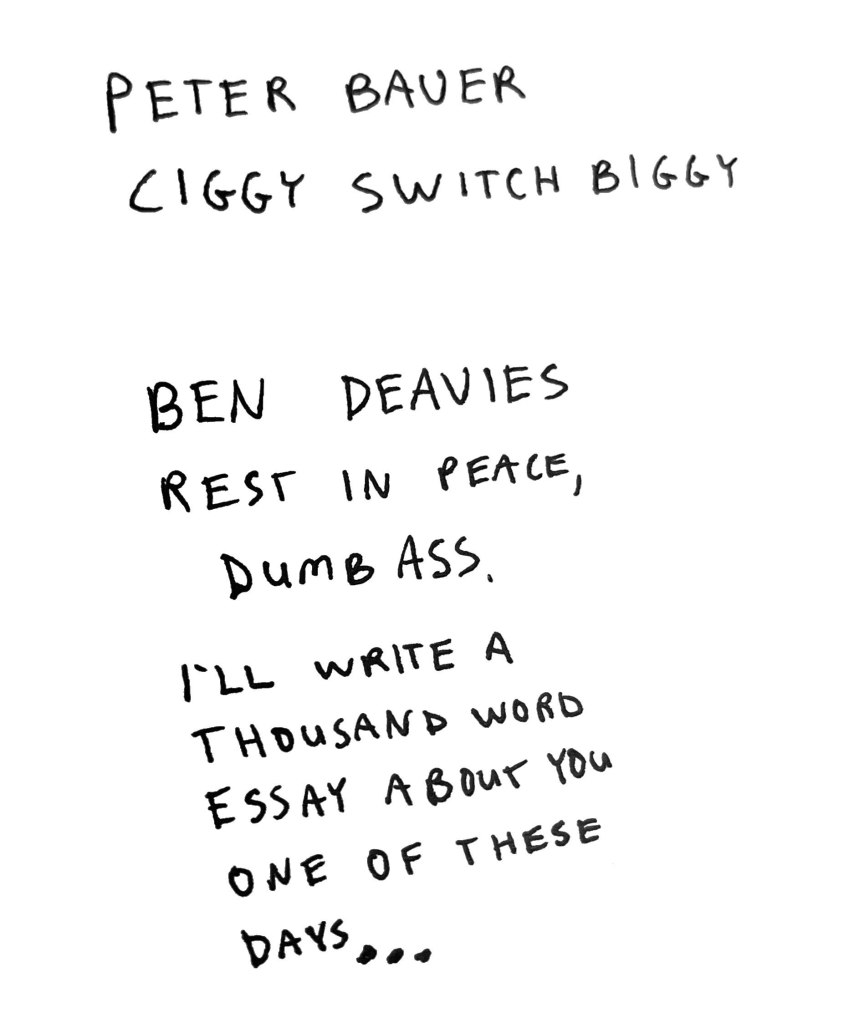 PETER BAUER
CIGGY SWITCH BIGGY
BEN DEAVIES
REST IN PEACE,
DUMB ASS.
I'LL WRITE A
THOUSAND WORD
ESSAY ABOUT YOU
ONE OF THESE
DAYS...